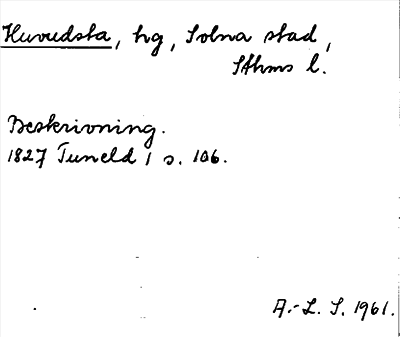 Huvudsta, hg, Solna stad,
Sthms l.
Beskrivning.
1827 Tuneld I s. 106.
A.-L. S. 1961.